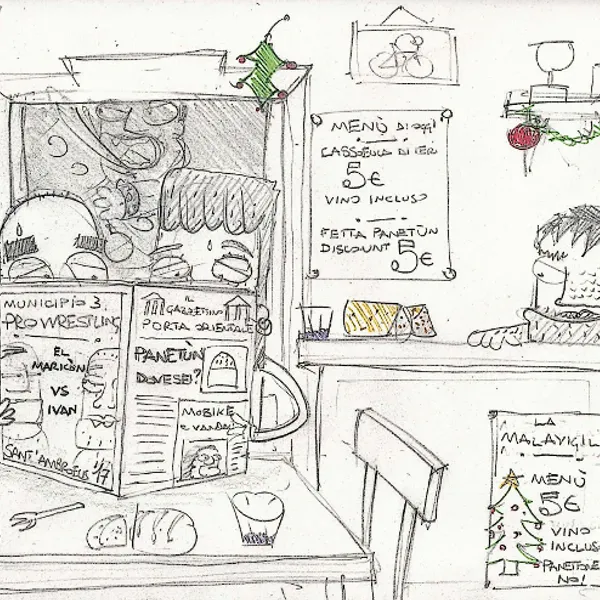 MENÙ DI OGGI
CASSOEULA DI IERI
5€
VINO INCLUSO
FETTA PANETÙN
DISCOUNT 5€
MUNICIPIO 3
PROWRESTLING
EL
MARICÒN
VS
IVAN
SANT'AMBROEUS 1/7
IL
GAZZETTINO
PORTA ORIENTALE
PANETÙN
DOVESEI?
MOBIKE
E VANDALI
LA
MALAVIGIL
MENÙ
5€
VINO
INCLUSO
PANETONE
NO!